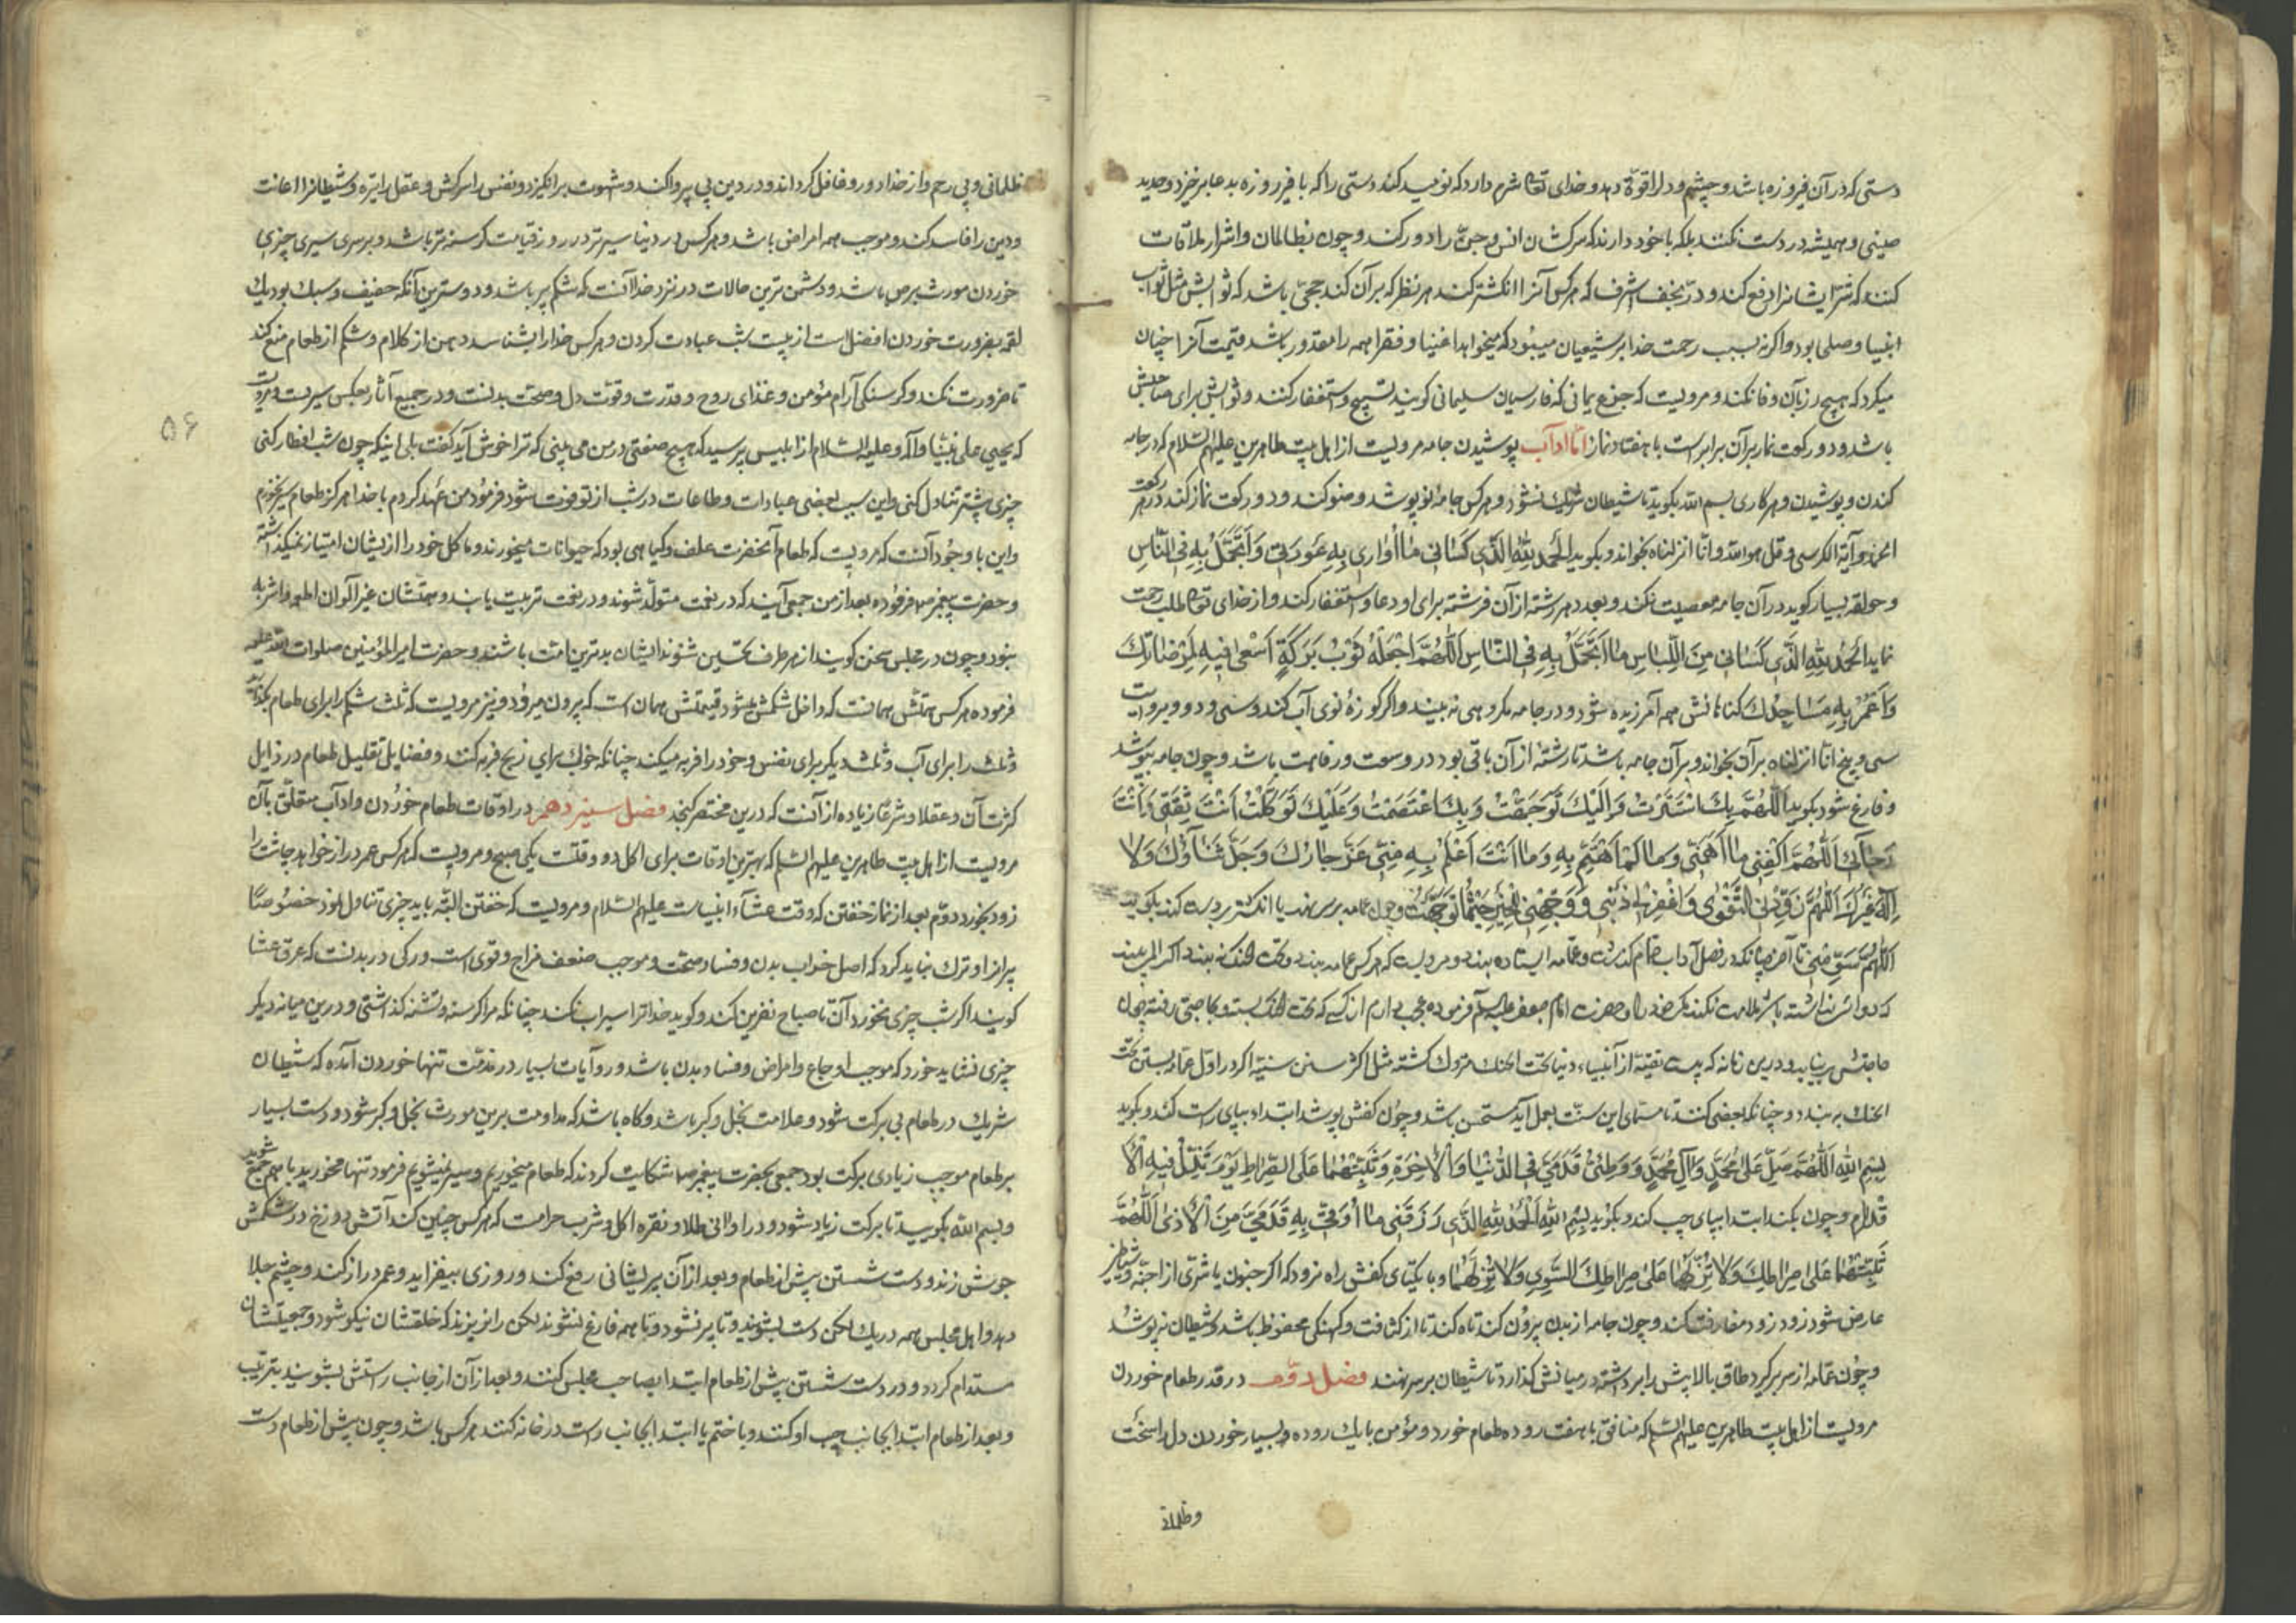 دستی که در آن فیروزه باشد و چشم و دل را قوّة دهد و خدای تعالی شرم دارد که نومید کند دستی را که با فیروزه بدعا برخیزد و حدید
صینی و همیشه در دست نکنند بلکه با خود دارند که سرکشان انس و جنّ را دور کند و چون بظالمان و اشرار ملاقات
کنند که شرّ ایشانرا دفع کند و درّ نجف اشرف که هر کس آنرا انکشتر کند هر نظر که بر آن کند حجّی باشد که ثوابش مثل ثواب
انبیا و صلحا بود و اکر نه بسبب رحمت خدا بر شیعیان میبود که میخواهد اغنیا و فقرا همه را مقدور باشد قیمت آنرا چنان
میکرد که هیچ زر بآن وفا نکند و مرویست که جزع یمانی که فارسیان سلیمانی کویند تسبیح و استغفار کنند و ثوابش برای صاحبش
باشد و دو رکعت نماز بر آن برابر است با هفتاد نماز امّا ادآب پوشیدن جامه مرویست از اهل بیت طاهرین علیهم السّلام که در جامه
کندن و پوشیدن و هر کاری بسم الله بکوید تا شیطان شریک نشود و هر کس جامهٔ نو پوشد وضو کند و دو رکعت نماز کند در هر رکعت
الحمد و آیة الکرسی و قل هو الله و انّا انزلناه بخواند و بکوید الْحَمْدُ لِلّٰهِ الَّذی کَسٰانی مٰا اُوٰاری بِهِ عَوْرَتی وَ اَتَجَمَّلُ بِهِ فِی النّٰاسِ
و حولقه بسیار کوید در آن جامه معصیت نکند و بعدد هر رشته از آن فرشته برای او دعا و استغفار کند و از خدای تعالی طلب رحمت
نماید اَلْحَمْدُ لِلّٰهِ الَّذی کَسٰانی مِنَ اللِّبٰاسِ مٰا اَتَجَمَّلُ بِهِ فِی النّٰاسِ اَللّٰهُمَّ اجْعَلْهُ ثَوْبَ بَرَکَةٍ اَسْعٰی فیهِ لِمَرْضٰاتِکَ
وَ اَعْمُرُ بِهِ مَسٰاجِدَکَ کناهانش همه آمرزیده شود و در جامه مکروهی نه بیند و اکر کوزهٔ نوی آب کند و سی و دو و بروایت
سی و پنج انّا انزلناه بر آن بخواند و بر آن جامه باشد تا رشتهٔ از آن باقی بود در وسعت و رفاهت باشد و چون جامه بپوشد
و فارغ شود بکوید اَللّٰهُمَّ بِکَ اسْتَتَرْتُ وَ اِلَیْکَ تَوَجَّهْتُ وَ بِکَ اعْتَصَمْتُ وَ عَلَیْکَ تَوَکَّلْتُ اَنْتَ ثِقَتی وَ اَنْتَ
رَجٰائی اَللّٰهُمَّ اکْفِنی مٰا اَهَمَّنی وَ مٰا لَمْ اَهْتَمَّ بِهِ وَ مٰا اَنْتَ اَعْلَمُ بِهِ مِنّی عَزَّ جٰارُکَ وَ جَلَّ ثَنٰاؤُکَ وَ لاٰ
اِلٰهَ غَیْرُکَ اَللّٰهُمَّ زَوِّدْنی التَّقْوٰی وَ اغْفِرْ لی ذَنْبی وَ وَجِّهْنی لِلْخَیْرِ حَیْثُمٰا تَوَجَّهْتُ و چون عمامه بر سر نهد یا انکشتر بر دست کند بکوید
اللّٰهم سوّمنی تا آخر چنانکه در فصل آداب حمام کذشت و عمّامه ایستاده بندد و مرویست که هر کس عمامه بندد و تحت الحنک نه بندد اکر المی بیند
که دوائش نداشته باشد ملامت نکند مکر خود را و حضرت امام جعفر علیه السلم فرموده عجب دارم از کسی که تحت الحنک بسته و بحاجتی رفته چون
حاجتش بر نیاید و درین زمانه که بسبب تقیّه از ابنیاء دنیا تحت الحنک متروک کشته مثل اکثر سنن سنیّه اکر در اوّل عمّامه بستن تحت
الحنک به بندد و چنانکه بعضی کنند تا مسمّای این سنّت بعمل آید مستحسن باشد و چون کفش پوشد ابتدا بپای راست کند و بکوید
بِسْمِ اللّٰهِ اَللّٰهُمَّ صَلِّ عَلٰی مُحَمَّدٍ وَ آلِ مُحَمَّدٍ وَ وَطِّئْ قَدَمَیَّ فِی الدُّنْیٰا وَ الْاٰخِرَةِ وَ ثَبِّتْهُمٰا عَلَی الصِّرٰاطِ یَوْمَ تَزِلُّ فیهِ الْاَ
قْدٰام و چون بکند ابتدا بپای چپ کند و بکوید بِسْمِ اللّٰهِ اَلْحَمْدُ لِلّٰهِ الَّذی رَزَقَنی مٰا اُوَقّی بِهِ قَدَمَیَّ مِنَ الْاَذٰی اَللّٰهُمَّ
ثَبِّتْهُمٰا عَلٰی صِرٰاطِکَ وَ لاٰ تُزِلَّهُمٰا عَلٰی صِرٰاطِکَ السَّوِیِ وَ لاٰ تُزِلَّهُمٰا و با یکتای کفش راه نرود که اکر جنون یا شرّی از اجنّه و شیاطین
عارض شود زود زود مفارقت نکند و چون جامه از بدن بیرون کند تاه کند تا از کثافت و کهنکی محفوظ باشد و شیطان نپوشد
و چون عمّامه از سر بر کیرد طاق بالایش را برداشته در میانش کذارد تا شیطان بر سر ننهد فصل دوّم در قدر طعام خوردن
مرویست از اهل بیت طاهرین علیهم السّلم که منافق با هفت روده طعام خورد و مؤمن با یک روده و بسیار خوردن دل را سخت
و ظلمانی
ظلمانی و بی رحم و از خدا دور و غافل کرداند و در دین بی پروا کند و شهوت برانکیزد و نفس را سرکش و عقل را تیره و شیطانرا اعانت
و دین را فاسد کند و موجب همه امراض باشد و هر کس در دنیا سیرتر در روز قیامت کرسنه تر باشد و بر سری سیری چیزی
خوردن مورث برص باشد و دشمن ترین حالات در نزد خدا آنست که شکم پر باشد و دوسترین آنکه خفیف و سبک بود یک
لقمه بضرورت خوردن افضل است از بیست شب عبادت کردن و هر کس خدا را بشناسد دهن از کلام و شکم از طعام منع کند
تا ضرورت نکند و کرسنکی آرام مؤمن و غذای روح و قدرت و قوّت دل و صحّت بدنست و در جمیع آثار بعکس سیریست و مرویست
که یحیی علی نبیّنا و آله و علیه السّلام از ابلیس پرسید که هیچ صفتی در من می بینی که ترا خوش آید کفت بلی اینکه چون شب افطار کنی
چیزی بیشتر تناول کنی و این سبب بعضی عبادات و طاعات در شب از تو فوت شود فرمود من عهد کردم با خدا هرکز طعام سیر نخورم
و این با وجود آنست که مرویست که طعام آنحضرت علف و کیاهی بود که حیوانات میخورند و ماکل خود را از ایشان امتیاز نمیکذاشته
و حضرت پیغمبر ص فرموده بعد از من جمعی آیند که در نعمت متولّد شوند و در نعمت تربیت یابند و همتشان غیر الوان اطعمه و اشربه
نبود و چون در مجلس سخن کویند از هر طرف تحسین شنوند ایشان بدترین امّت باشند و حضرت امیر المؤمنین صلوات الله علیه
فرموده هر کس همتش همانست که داخل شکمش شود قیمتش همان است که بیرون میرود و نیز مرویست که ثلث شکم را برای طعام بکذارید
و ثلث را برای آب و ثلث دیکر برای نفس و خود را فربه میکند چنانکه خوک برای ذبح فربه کنند و فضایل تقلیل طعام در ذایل
کثرت آن عقلا و شرعًا زیاده از آنست که درین مختصر کنجد فصل سیزدهم در اوقات طعام خوردن و ادآب متعلّق بآن
مرویست از اهل بیت طاهرین علیهم السّلم که بهترین اوقات برای اکل دو وقتست یکی صبح و مرویست که هر کس عمر دراز خواهد چاشت را
زود بخورد و دوّم بعد از نماز خفتن که وقت عشاء انبیاست علیهم السّلام و مرویست که خفتن البتّه باید چیزی تناول نمود خصوصًا
پیرانرا و ترک نباید کرد که اصل خراب بدن و فساد صحّت و موجب ضعف مزاج و قوی است و رکی در بدنست که عرق عشا
کویند اکر شب چیزی نخورد آن تا صباح نفرین کند و کوید خدا ترا سیراب نکند چنانکه مرا کرسنه و تشنه کذاشتی و درین میانه دیکر
چیزی نشاید خورد که موجب اوجاع و امراض و فساد بدن باشد و روآیات بسیار در مذمّت تنها خوردن آمده که شیطان
شریک در طعام بی برکت شود و علامت بخل و کبر باشد و کاه باشد که مداومت برین مورث بخل و کبر شود و دست بسیار
بر طعام موجب زیادی برکت بود جمعی بحضرت پیغمبر ص شکایت کردند که طعام میخوریم و سیر نمیشویم فرمود تنها مخورید با هم جمع شوید
و بسم الله بکویید تا برکت زیاد شود و در اوانی طلا و نقره اکل و شرب حرامست که هر کس چنین کند آتش دوزخ در شکمش
جوش زند و دست شستن پیش از طعام و بعد از آن پریشانی رفع کند و روزی بیفزاید و عمر دراز کند و چشم جلا
دهد و اهل مجلس همه در یک لکن دست بشویند و تا پر نشود و تا همه فارغ نشوند لکن را نریزند که خلقشان نیکو شود و جمعیّتشان
مستدام کردد و در دست شستن پیش از طعام ابتدا بصاحب مجلس کنند و بعد از آن از جانب راستش بشویند بترتیب
و بعد از طعام ابتدا بجانب چپ او کنند و با ختم یا ابتدا بجانب راست در خانه کنند هر کس باشد و چون پیش از طعام دست
۵۶